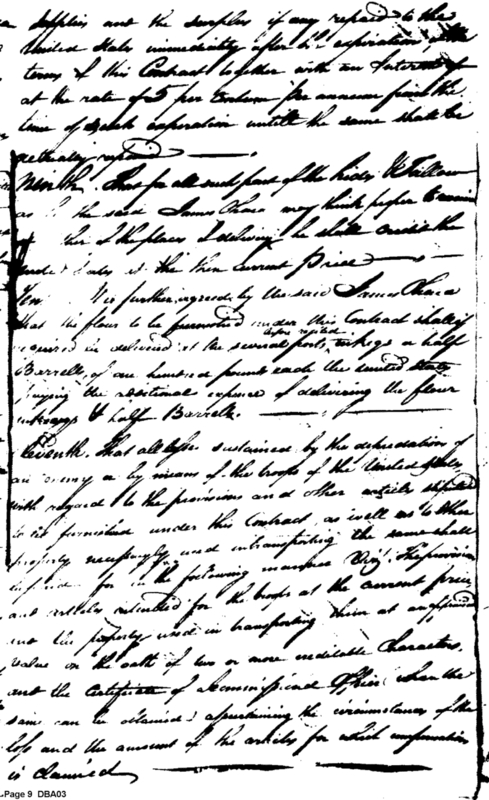 supplies and the surplus if any repaid to the
United States immediately after the expiration of the
terms of this Contract together with an Interest
at the rate of 5 per Centum per annum from the
time of such expiration untill the same shall be
actually repaid
Ninth. That for all such part of the hides & Tallow
as the said James Ohara may think proper to
at the places of delivery he shall credit the
United States at the then current Price
Ten It is further agreed by the said James Ohara
that the flour to be furnished under this Contract shall if
required be delivered at the several posts before recited in kegs or half
Barrells of one hundred pounds each the United States
paying the additional expence of delivering the flour
in kegs & half Barrells.
Eleventh. That all losses sustained by the depredation of
an enemy or by means of the troops of the United States
with regard to the provisions and other articles
to be furnished under this Contract, as well as to other
property necessarily used in transporting the same shall
be paid for in the following manner Viz. The provisions
and articles intended for the troops at the current price
and the property used in transporting them at an appraised
value on the oath of two or more creditable Characters,
and the Certificate of a commissioned Officer when the
same can be obtained ascertaining the circumstances of the
loss and the amount of the articles for which compensation
is claimed
Page 9 DBA03